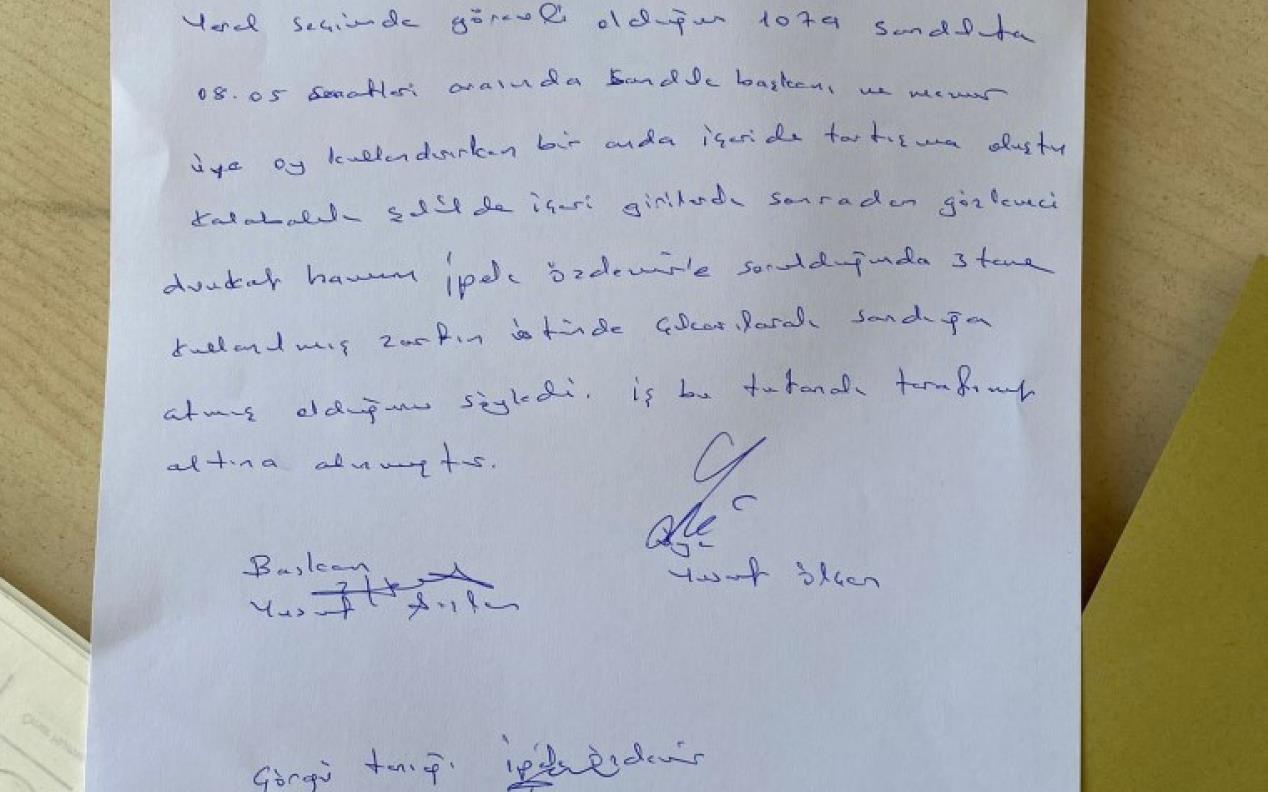 Yerel seçimde görevli olduğum 1079 sandıkta
08.05 saatleri arasında sandık başkanı ve memur
üye oy kullandırırken bir anda içeride tartışma oluştu
kalabalık şekilde içeri girilerek sonradan gözlemci
avukat hanım İpek Özdemir'e sorulduğunda 3 tane
kullanılmış zarfın üstünde çıkarılarak sandığa
atmış olduğunu söyledi. iş bu tutanak tarafımıp
altına alınmıştır.
Başkan
Yusuf
Üye
Yusuf Ölçen
Görgü tanığı İpek Özdemir